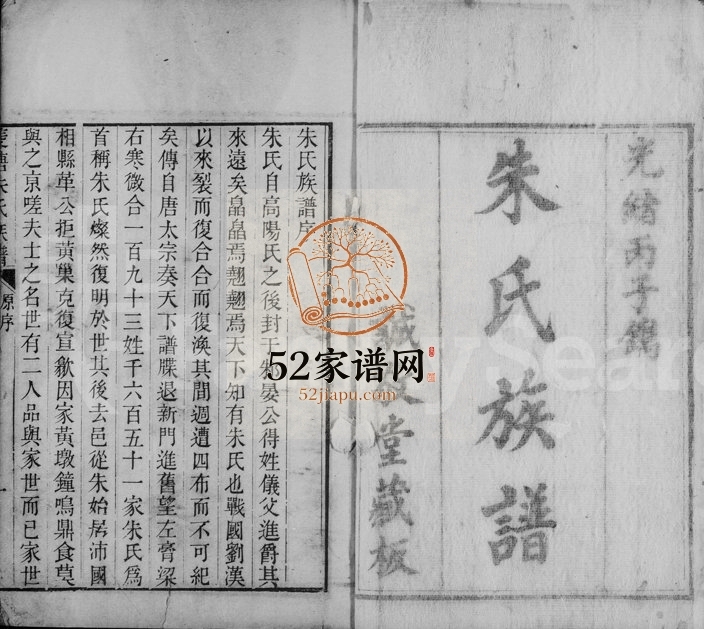 光緒丙子鐫
朱氏族譜
堂藏板
朱氏族譜序
朱氏自高陽氏之後封于邾晏公得姓儀父進爵其
來遠矣皛皛焉翹翹焉天下知有朱氏也戰國劉漢
以來裂而復合合而復渙其間週遭四布而不可紀
矣傳自唐太宗奏天下譜牒退新門進舊望左膏梁
右寒微合一百九十三姓千六百五十一家朱氏爲
首稱朱氏燦然復明於世其後去邑從朱始居沛國
相縣革公拒黃巢克復宣歙因家黃墩鐘鳴鼎食莫
與之京嗟夫士之名世有二人品與家世而已家世
朱氏族譜
原序
52家谱网
52jiapu.com